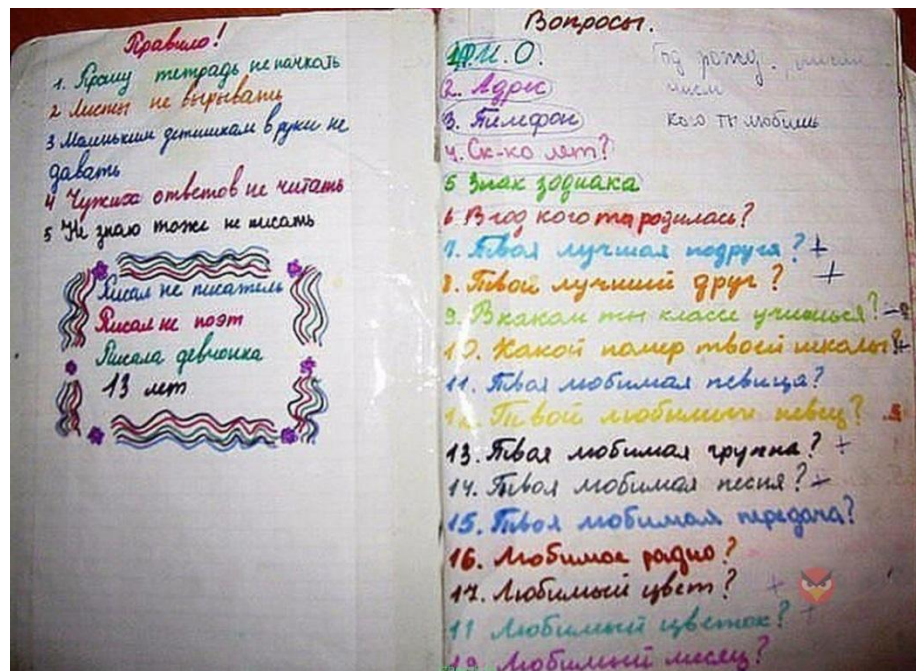 Правило!
1. Прошу тетрадь не пачкать
2 Листы не вырывать
3 Маленьким детишкам в руки не
давать
4 Чужих ответов не читать
5 Не знаю тоже не писать
Писал не писатель
Писал не поэт
Писала девчонка
13 лет
Вопросы.
1. Ф.И.О.
2. Адрес
3. Тилефон
4. Ск-ко лет?
5 Знак зодиака
6 В год кого ты родилась?
7. Твоя лучшая подруга? +
8. Твой лучший друг? +
9. В каком ты классе учишься?
10. Какой номер твоей школы?
11. Твоя любимая певица?
12. Твой любимый певец?
13. Твоя любимая группа? +
14. Твоя любимая песня?
15. Твоя любимая передача?
16. Любимое радио?
17. Любимый цвет? +
11 Любимый цветок? +
19. Любимый месяц?
Год рожд.
кого ты любишь